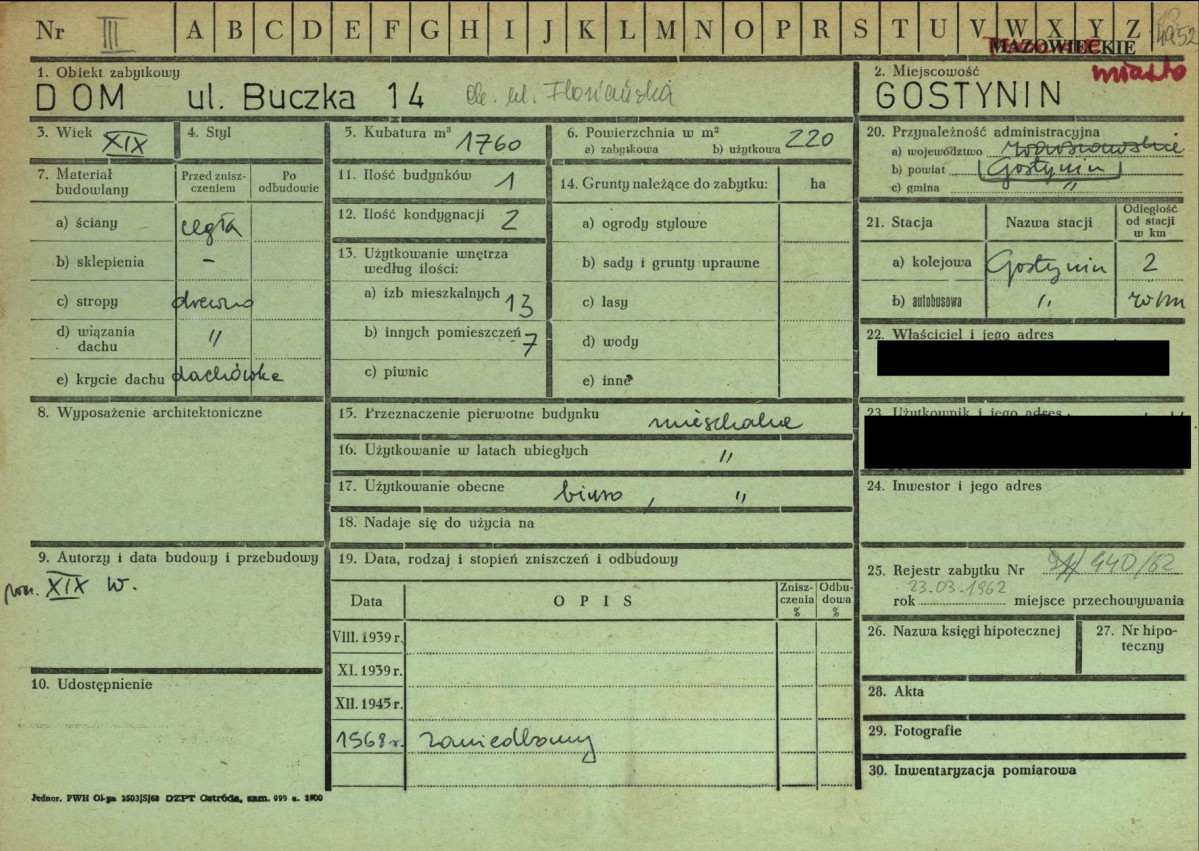 Nr III A B C D E F G H I J K L M N O P R S T U V W X Y Z 4952
MAZOWIECKIE
miasto
1. Obiekt zabytkowy
DOM ul. Buczka 14 ob. ul. Floriańska
2. Miejscowość
GOSTYNIN
3. Wiek XIX
4. Styl
5. Kubatura m³ 1760
6. Powierzchnia w m²
a) zabytkowa b) użytkowa 220
7. Materiał budowlany
Przed zniszczeniem
Po odbudowie
a) ściany cegła
b) sklepienia -
c) stropy drewno
d) wiązania dachu "
e) krycie dachu dachówka
8. Wyposażenie architektoniczne
9. Autorzy i data budowy i przebudowy
XIX w.
10. Udostępnienie
11. Ilość budynków 1
12. Ilość kondygnacji 2
13. Użytkowanie wnętrza
według ilości:
a) izb mieszkalnych 13
b) innych pomieszczeń 7
c) piwnic
14. Grunty należące do zabytku: ha
a) ogrody stylowe
b) sady i grunty uprawne
c) lasy
d) wody
e) inne
15. Przeznaczenie pierwotne budynku mieszkalne
16. Użytkowanie w latach ubiegłych "
17. Użytkowanie obecne biuro, "
18. Nadaje się do użycia na
19. Data, rodzaj i stopień zniszczeń i odbudowy
Data OPIS Zniszczenia % Odbudowa %
VIII. 1939 r.
XI. 1939 r.
XII. 1945 r.
1968 r. zaniedbany
20. Przynależność administracyjna
a) województwo warszawskie
b) powiat Gostynin
c) gmina "
21. Stacja Nazwa stacji Odległość od stacji w km
a) kolejowa Gostynin 2
b) autobusowa "
22. Właściciel i jego adres
23. Użytkownik i jego adres
24. Inwestor i jego adres
25. Rejestr zabytku Nr 440/62
23.03.1962
rok miejsce przechowywania
26. Nazwa księgi hipotecznej
27. Nr hipoteczny
28. Akta
29. Fotografie
30. Inwentaryzacja pomiarowa
Jednor. PWH Ol-ga 2503/S/68 DZPT Ostróda, zam. 999 n. 2900